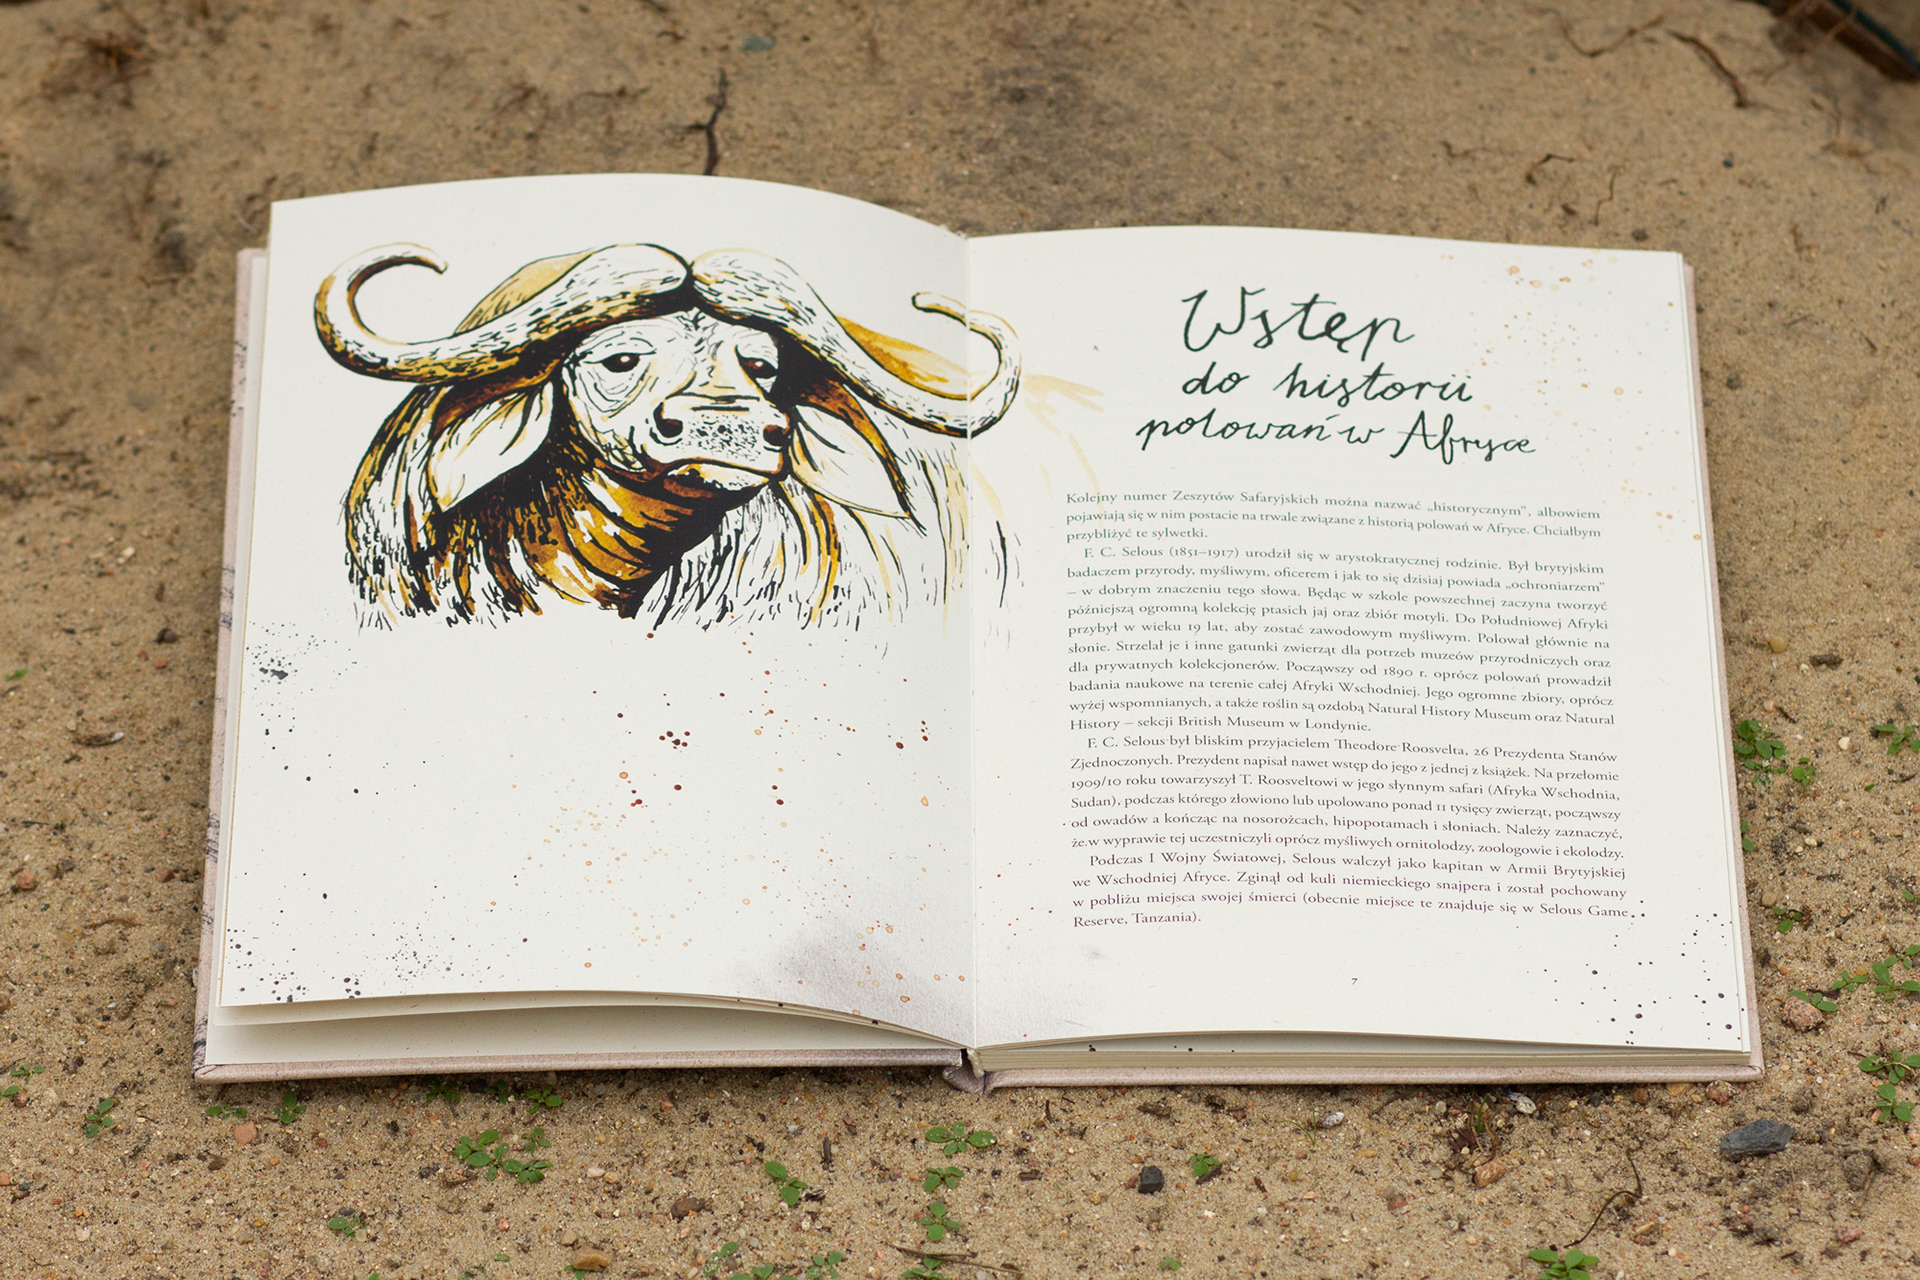 Wstęp
do historii
polowań w Afryce
Kolejny numer Zeszytów Safaryjskich można nazwać „historycznym", albowiem
pojawiają się w nim postacie na trwale związane z historią polowań w Afryce. Chciałbym
przybliżyć te sylwetki.
F. C. Selous (1851–1917) urodził się w arystokratycznej rodzinie. Był brytyjskim
badaczem przyrody, myśliwym, oficerem i jak to się dzisiaj powiada „ochroniarzem"
– w dobrym znaczeniu tego słowa. Będąc w szkole powszechnej zaczyna tworzyć
późniejszą ogromną kolekcję ptasich jaj oraz zbiór motyli. Do Południowej Afryki
przybył w wieku 19 lat, aby zostać zawodowym myśliwym. Polował głównie na
słonie. Strzelał je i inne gatunki zwierząt dla potrzeb muzeów przyrodniczych oraz
dla prywatnych kolekcjonerów. Począwszy od 1890 r. oprócz polowań prowadził
badania naukowe na terenie całej Afryki Wschodniej. Jego ogromne zbiory, oprócz
wyżej wspomnianych, a także roślin są ozdobą Natural History Museum oraz Natural
History – sekcji British Museum w Londynie.
F. C. Selous był bliskim przyjacielem Theodore Roosvelta, 26 Prezydenta Stanów
Zjednoczonych. Prezydent napisał nawet wstęp do jego z jednej z książek. Na przełomie
1909/10 roku towarzyszył T. Roosveltowi w jego słynnym safari (Afryka Wschodnia,
Sudan), podczas którego złowiono lub upolowano ponad 11 tysięcy zwierząt, począwszy
od owadów a kończąc na nosorożcach, hipopotamach i słoniach. Należy zaznaczyć,
że w wyprawie tej uczestniczyli oprócz myśliwych ornitolodzy, zoologowie i ekolodzy.
Podczas I Wojny Światowej, Selous walczył jako kapitan w Armii Brytyjskiej
we Wschodniej Afryce. Zginął od kuli niemieckiego snajpera i został pochowany
w pobliżu miejsca swojej śmierci (obecnie miejsce te znajduje się w Selous Game
Reserve, Tanzania).
7